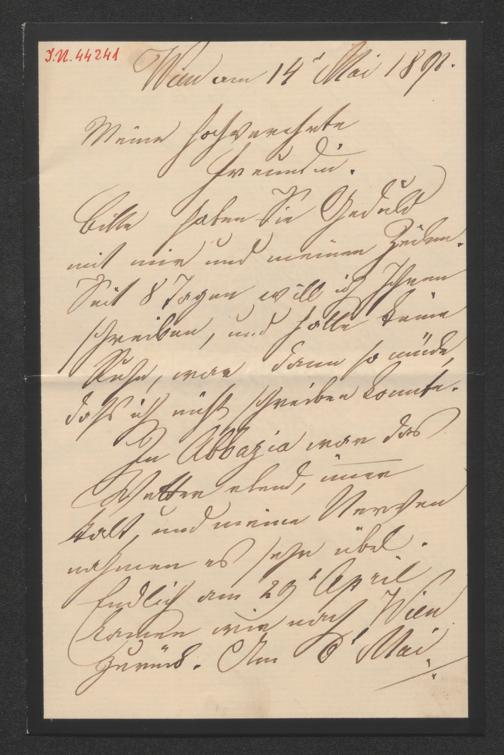 J.N. 44241
Wien am 14t Mai 1890.
Meine hochverehrte
Freundin.
Bitte haben Sie Geduld
mit mir und meinen
Seit 8 Tagen will ich Ihnen
schreiben, und hatte keine
Ruhe, war dann so müde,
daß ich nicht schreiben konnte.
In Abbazia war das
Wetter elend, immer
kalt, und meine Nerven
nahmen es sehr übel.
Endlich am 29t April
kamen wir nach Wien
zurück. Am 6t Mai